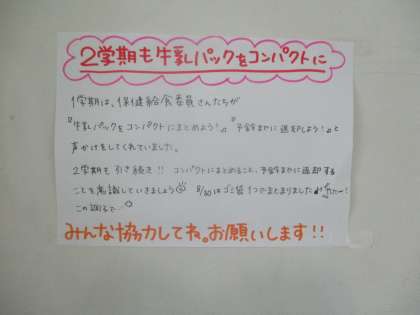 2学期も牛乳パックをコンパクトに
1学期は、保健給食委員さんたちが
『牛乳パックをコンパクトにまとめよう！』『予鈴までに返却しよう！』と
声かけをしてくれていました。
2学期も引き続き!! コンパクトにまとめること、予鈴までに返却する
ことを意識していきましょう 8/30はゴミ袋1つでまとまりました
この調子で…
みんな協力してね。お願いします!!